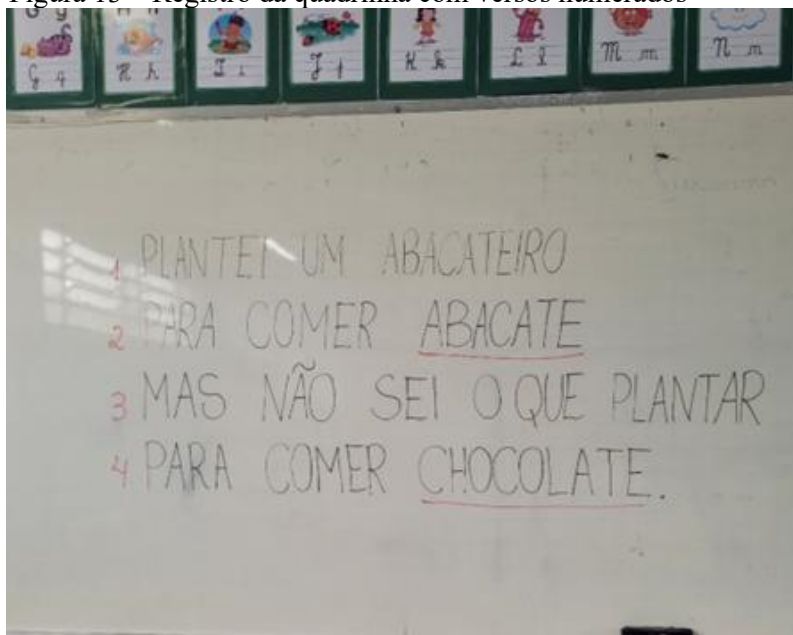 Figura 13 – Registro da quadrinha com versos numerados
G g H h I i J j K k L l M m N n
1 PLANTEI UM ABACATEIRO
2 PARA COMER ABACATE
3 MAS NÃO SEI O QUE PLANTAR
4 PARA COMER CHOCOLATE.